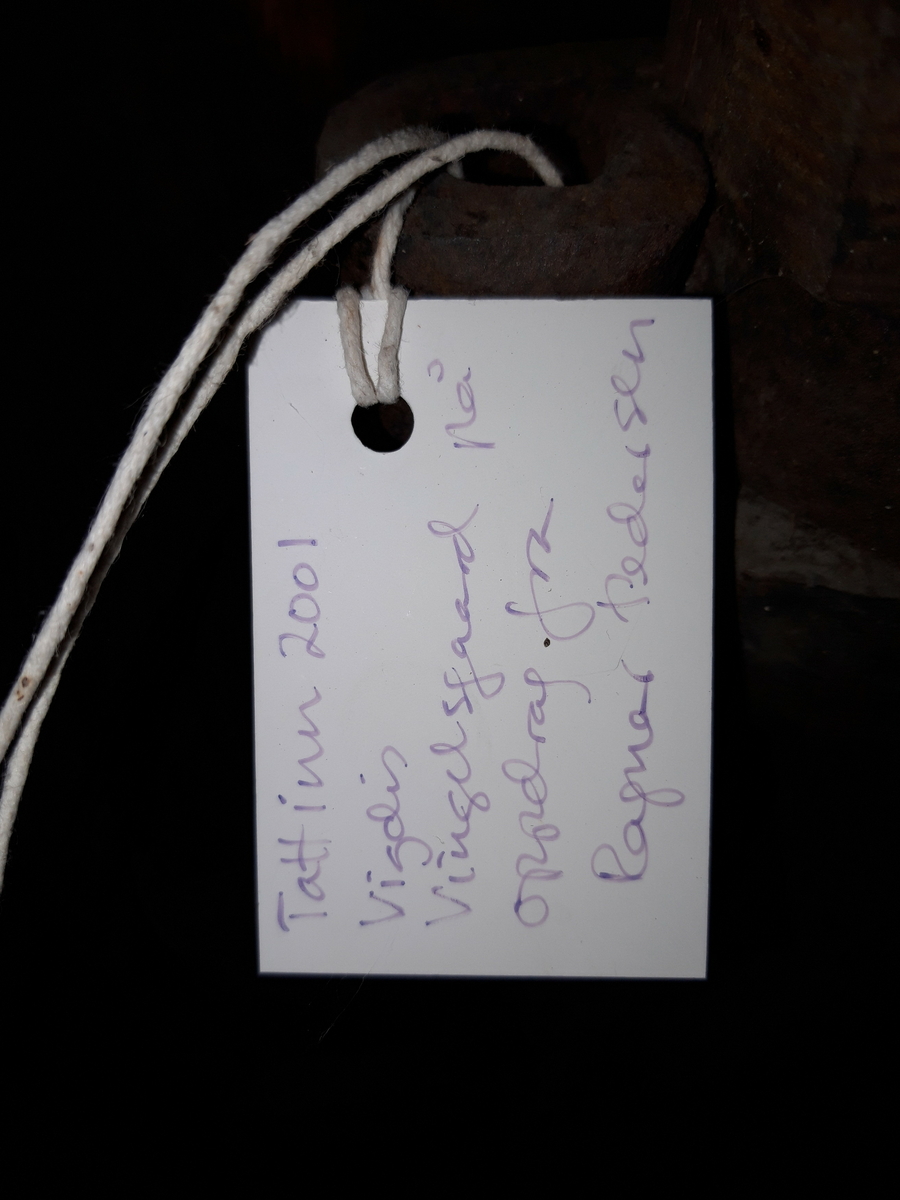 Tatt inn 2001
Vigdis
Vingelsgaard på
oppdrag fra
Ragnar Pedersen